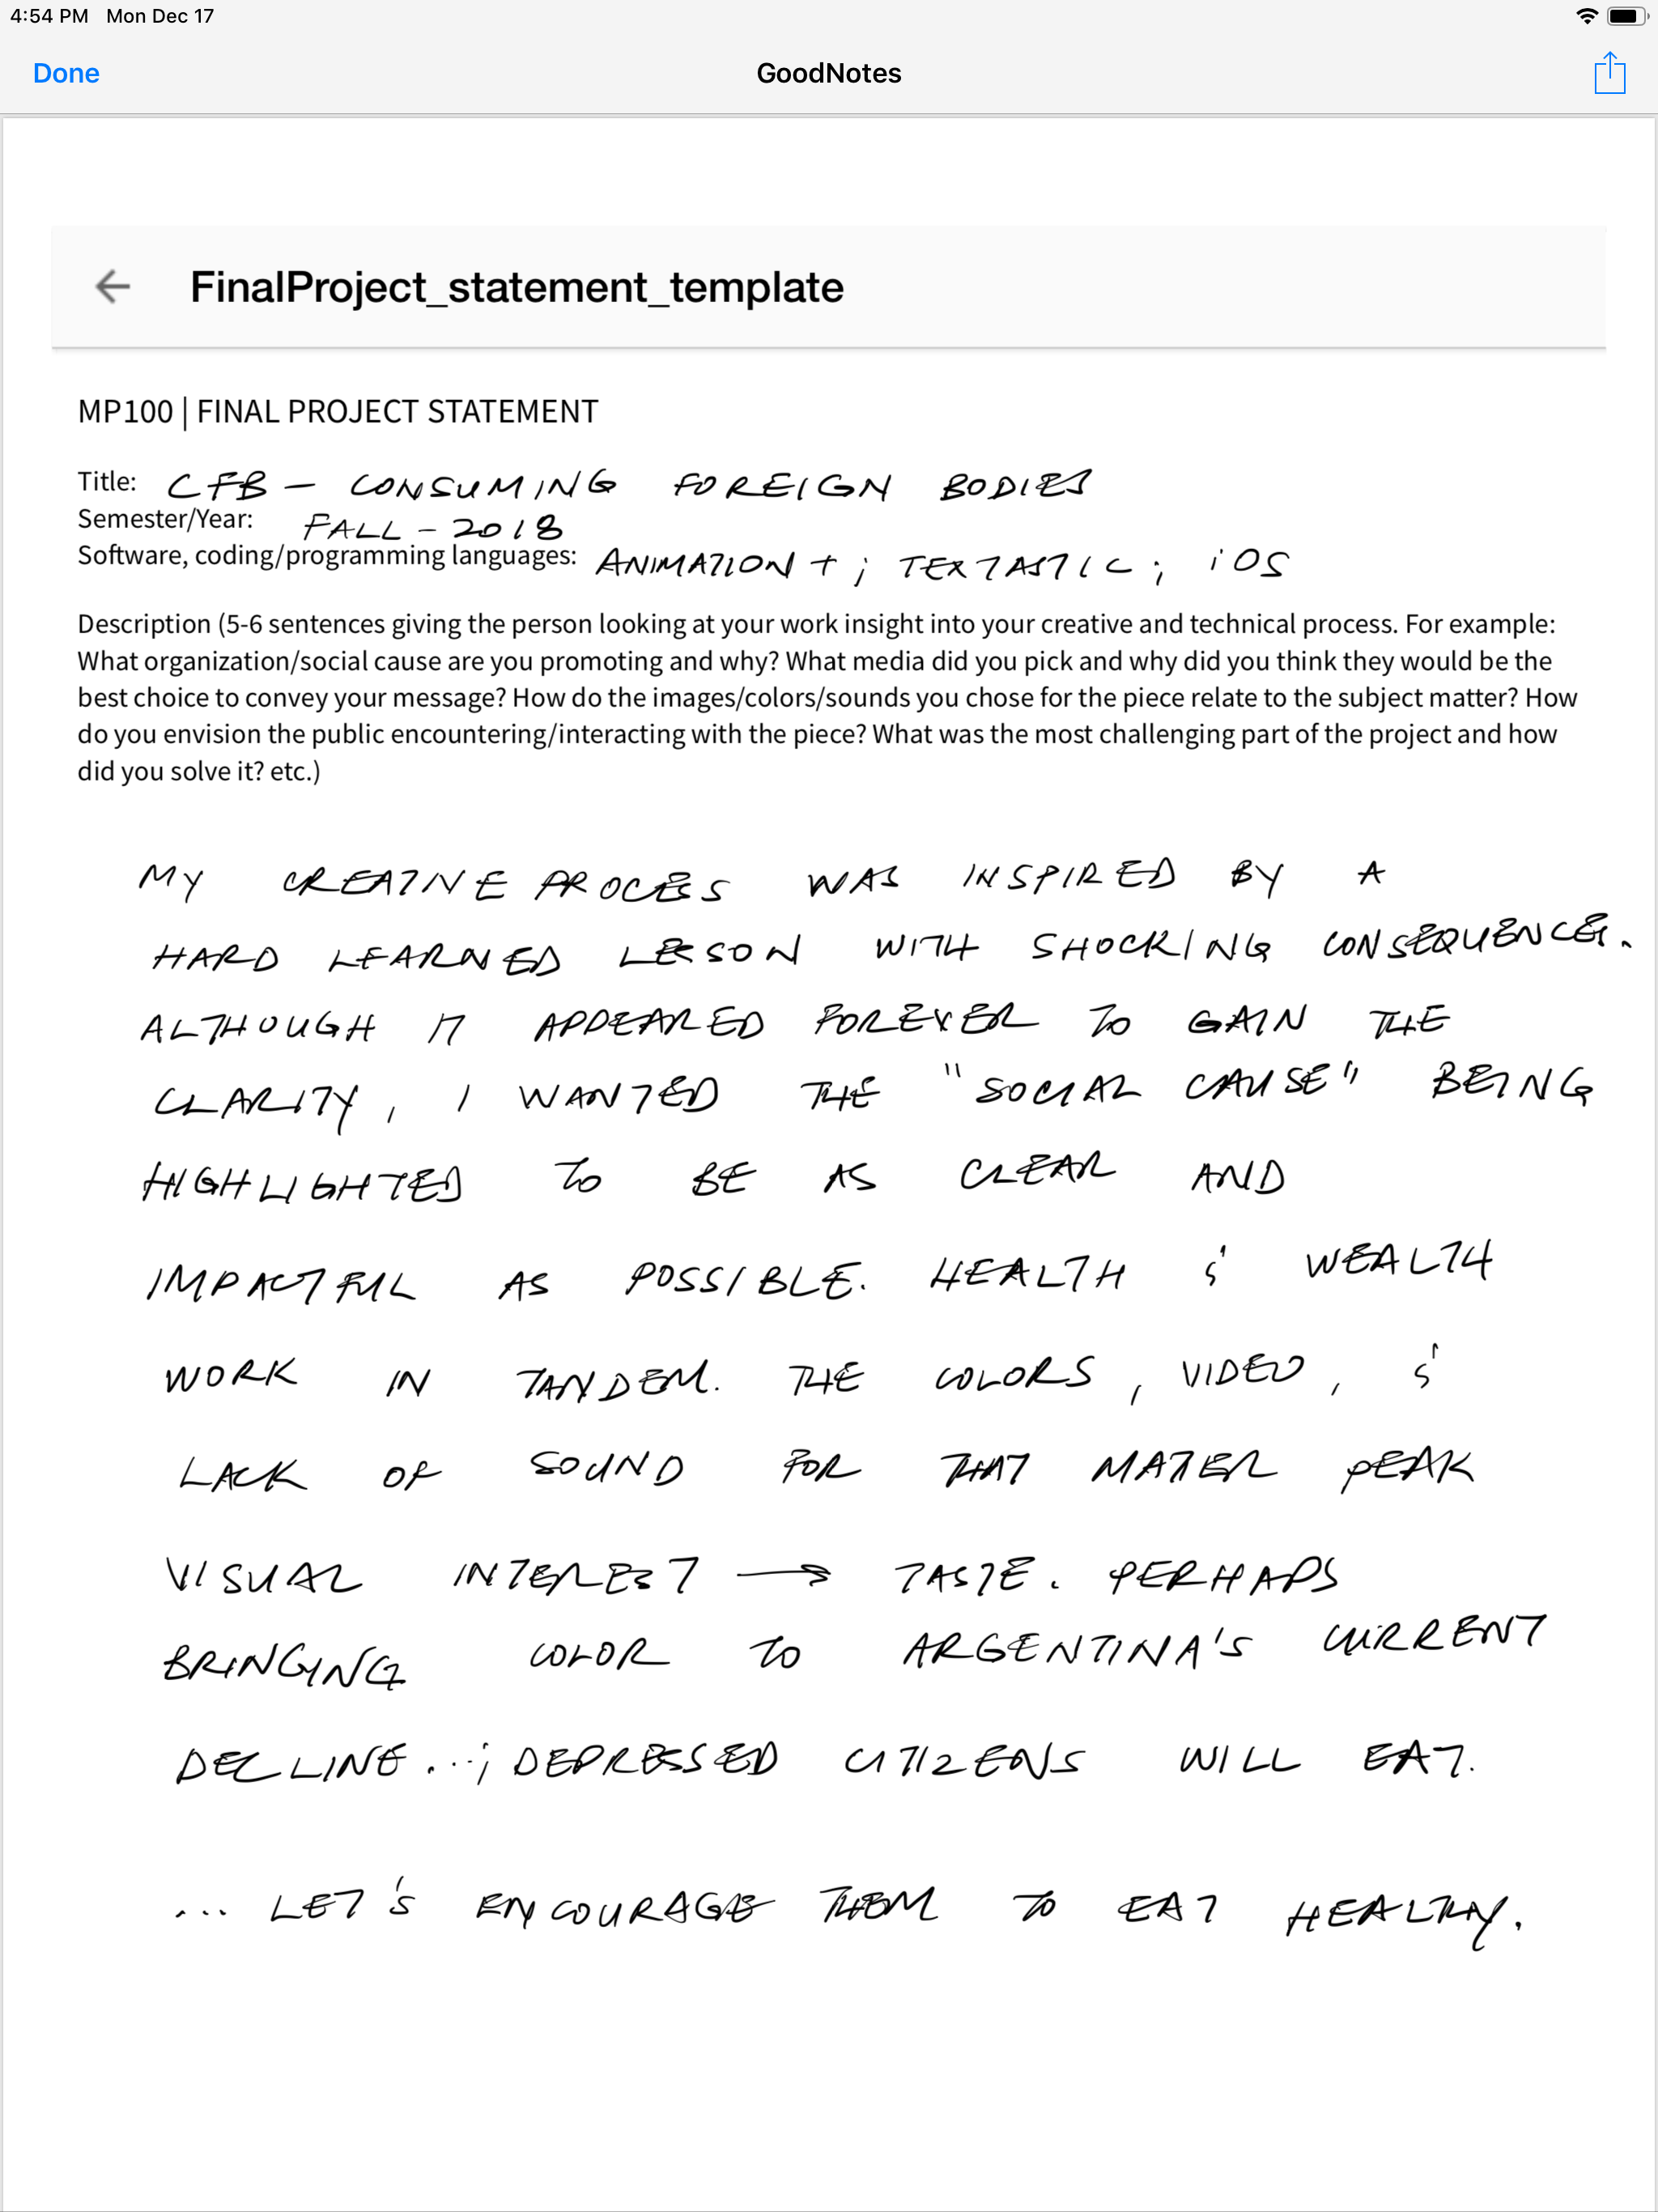 4:54 PM Mon Dec 17
Done GoodNotes
FinalProject_statement_template
MP100 | FINAL PROJECT STATEMENT
Title: CFB - CONSUMING FOREIGN BODIES
Semester/Year: FALL - 2018
Software, coding/programming languages: ANIMATION + ; TEXTASTIC ; iOS
Description (5-6 sentences giving the person looking at your work insight into your creative and technical process. For example:
What organization/social cause are you promoting and why? What media did you pick and why did you think they would be the
best choice to convey your message? How do the images/colors/sounds you chose for the piece relate to the subject matter? How
do you envision the public encountering/interacting with the piece? What was the most challenging part of the project and how
did you solve it? etc.)
MY CREATIVE PROCESS WAS INSPIRED BY A
HARD LEARNED LESSON WITH SHOCKING CONSEQUENCES.
ALTHOUGH IT APPEARED FOREVER TO GAIN THE
CLARITY, I WANTED THE "SOCIAL CAUSE" BEING
HIGHLIGHTED TO BE AS CLEAR AND
IMPACTFUL AS POSSIBLE. HEALTH & WEALTH
WORK IN TANDEM. THE COLORS, VIDEO, &
LACK OF SOUND FOR THAT MATER PEAK
VISUAL INTEREST → TASTE. PERHAPS
BRINGING COLOR TO ARGENTINA'S CURRENT
DECLINE...; DEPRESSED CITIZENS WILL EAT.
... LET'S ENCOURAGE THEM TO EAT HEALTHY.